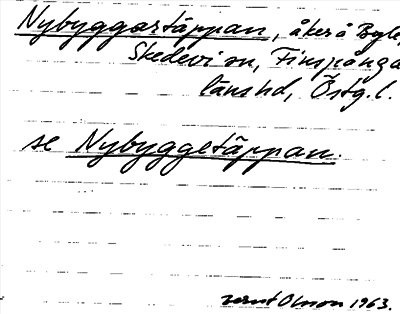 Nybyggartäppan, åker å Byle,
Skedevi sn, Finspånga
läns hd, Östg. l.
se Nybyggetäppan.
Olsson 1963.